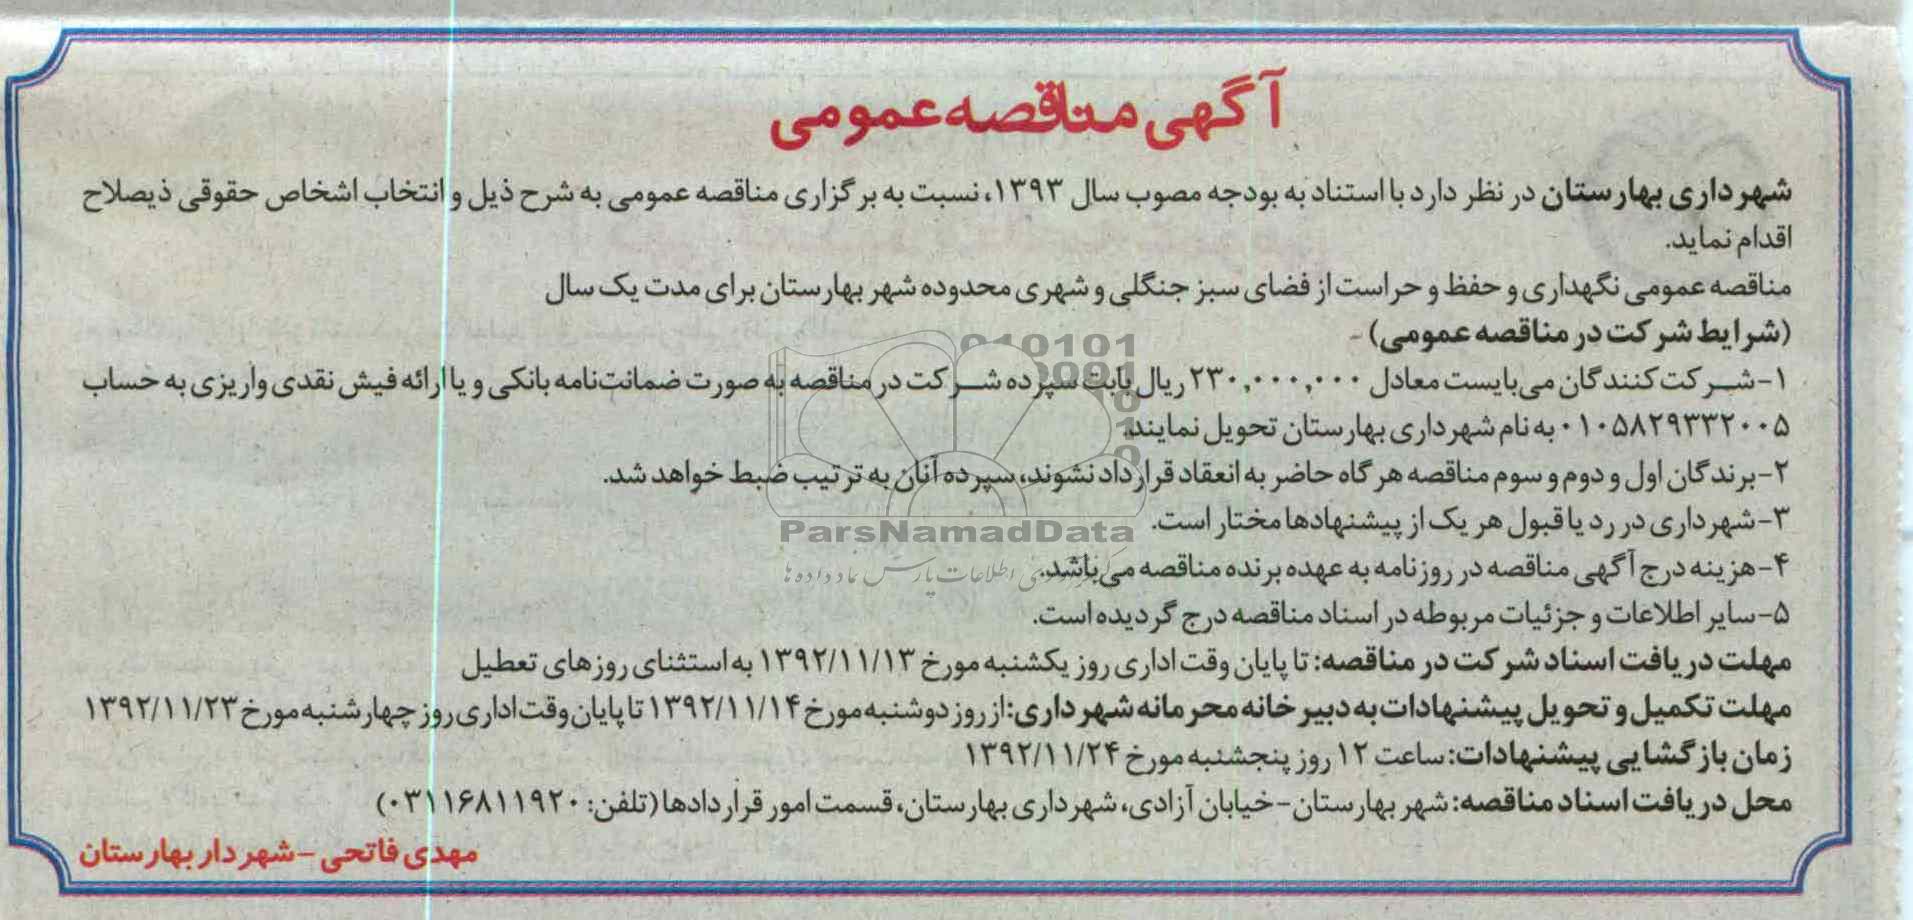 آگهی مناقصه عمومی
شهرداری بهارستان در نظر دارد با استناد به بودجه مصوب سال ۱۳۹۳، نسبت به برگزاری مناقصه عمومی به شرح ذیل و انتخاب اشخاص حقوقی ذیصلاح
اقدام نماید.
مناقصه عمومی نگهداری و حفظ و حراست از فضای سبز جنگلی و شهری محدوده شهر بهارستان برای مدت یک سال
(شرایط شرکت در مناقصه عمومی)
010101
0001
10
10
0
۱-شرکت‌کنندگان می‌بایست معادل ۲۳۰,۰۰۰,۰۰۰ ریال بابت سپرده شرکت در مناقصه به صورت ضمانت‌نامه بانکی و یا ارائه فیش نقدی واریزی به حساب
۰۱۰۵۸۲۹۳۳۲۰۰۵ به نام شهرداری بهارستان تحویل نمایند.
۲-برندگان اول و دوم و سوم مناقصه هرگاه حاضر به انعقاد قرارداد نشوند، سپرده آنان به ترتیب ضبط خواهد شد.
۳-شهرداری در رد یا قبول هر یک از پیشنهادها مختار است.
ParsNamadData
۴-هزینه درج آگهی مناقصه در روزنامه به عهده برنده مناقصه می‌باشد.
اطلاعات پارس نماد داده ها
۵-سایر اطلاعات و جزئیات مربوطه در اسناد مناقصه درج گردیده است.
مهلت دریافت اسناد شرکت در مناقصه: تا پایان وقت اداری روز یکشنبه مورخ ۱۳۹۲/۱۱/۱۳ به استثنای روزهای تعطیل
مهلت تکمیل و تحویل پیشنهادات به دبیرخانه محرمانه شهرداری: از روز دوشنبه مورخ ۱۳۹۲/۱۱/۱۴ تا پایان وقت اداری روز چهارشنبه مورخ ۱۳۹۲/۱۱/۲۳
زمان بازگشایی پیشنهادات: ساعت ۱۲ روز پنجشنبه مورخ ۱۳۹۲/۱۱/۲۴
محل دریافت اسناد مناقصه: شهر بهارستان-خیابان آزادی، شهرداری بهارستان، قسمت امور قراردادها (تلفن: ۰۳۱۱۶۸۱۱۹۲۰)
مهدی فاتحی -شهردار بهارستان